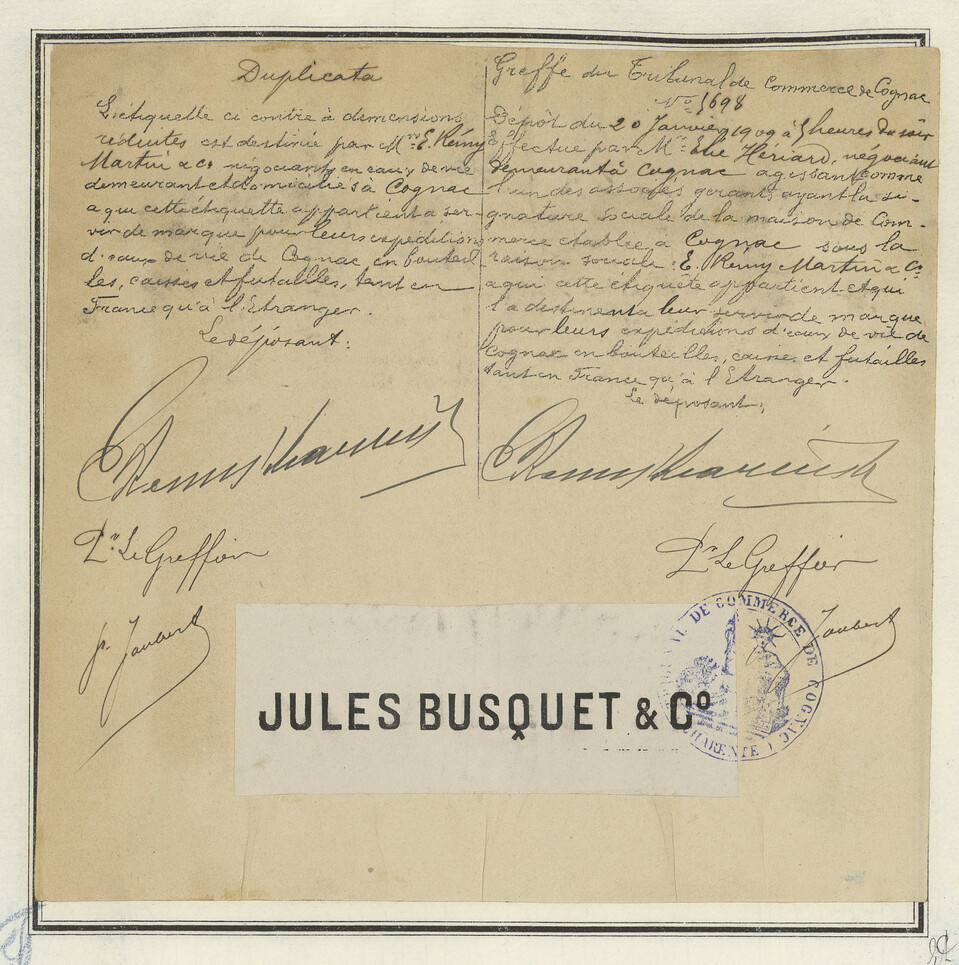 Duplicata
L'étiquette ci contre à dimensions
réduites est destinée par Mrs E. Rémy
Martin & Co négociants en eaux de vie
demeurant et domiciliés à Cognac
a qui cette étiquette appartient a ser-
vir de marque pour leurs expéditions
d'eaux de vie de Cognac en bouteil
les, caisses et futailles, tant en
France qu'à l'Etranger.
Le déposant:
E Remy Martin & Co
Pr Le Greffier
p. Jaubert
Greffe du Tribunal de Commerce de Cognac
No 1698
Dépôt du 20 Janvier 1909 à 5 heures du soir
Effectué par Mr Elie Hériard, négociant
demeurant à Cognac agissant comme
l'un des associés gérants ayant la si-
gnature sociale de la maison de Com-
merce établie à Cognac sous la
raison sociale: E. Rémy Martin & Co
a qui cette étiquète appartient et qui
l'a destinent a leur servir de marque
pour leurs expéditions d'eaux de vie de
Cognac en bouteilles, caisses et futailles
tant en France qu'à l'Etranger.
Le déposant:
E Remy Martin & Co
Pr Le Greffier
Jaubert
TRIBUNAL DE COMMERCE DE COGNAC
(CHARENTE)
JULES BUSQUET & Co